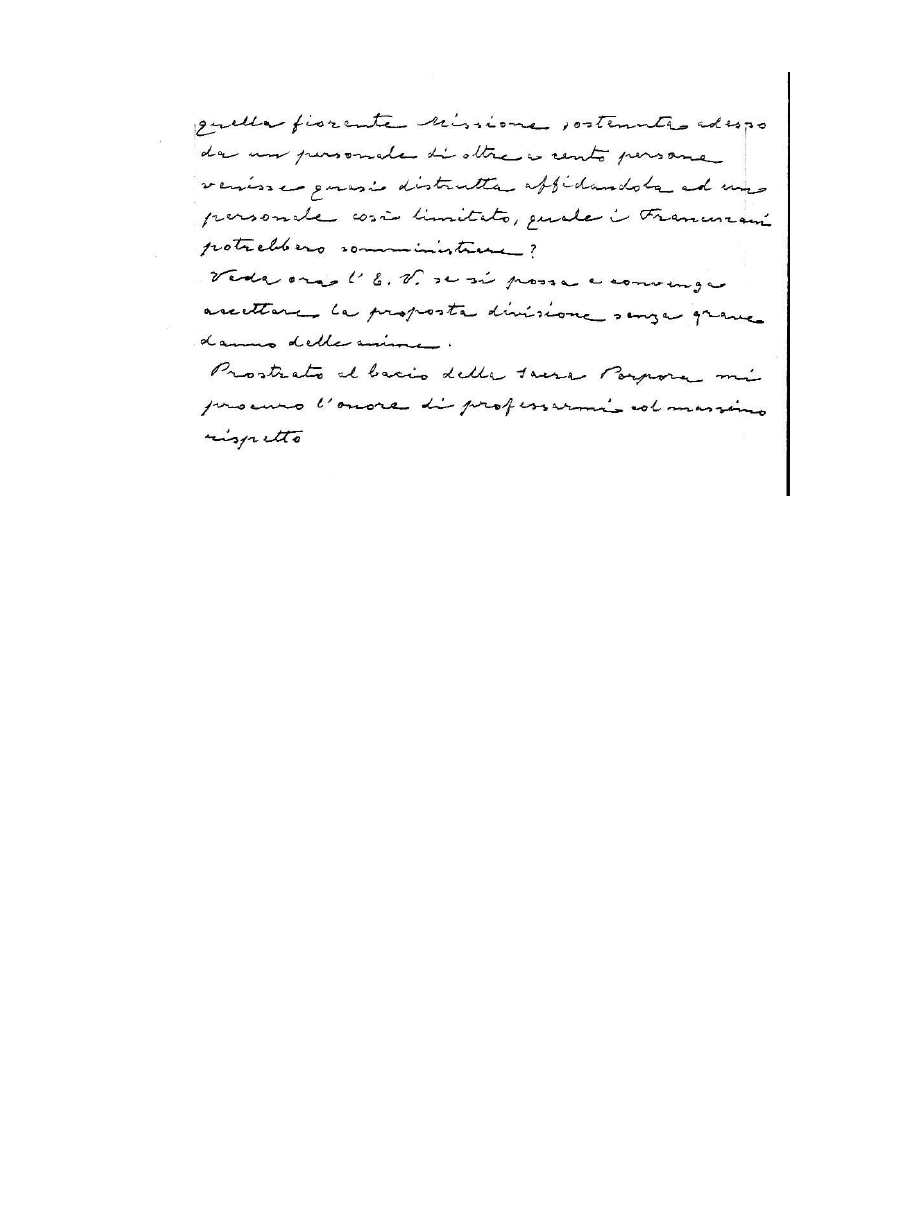 quella fiorente Missione, sostenuta adesso
da un personale di oltre a cento persone
venisse quasi distrutta affidandola ad un
personale così limitato, quale i Francescani
potrebbero somministrare?
Veda ora l'E. V. se si possa e convenga
accettare la proposta divisione senza grave
danno delle anime.
Prostrato al bacio della Sacra Porpora mi
procuro l'onore di professarmi col massimo
rispetto